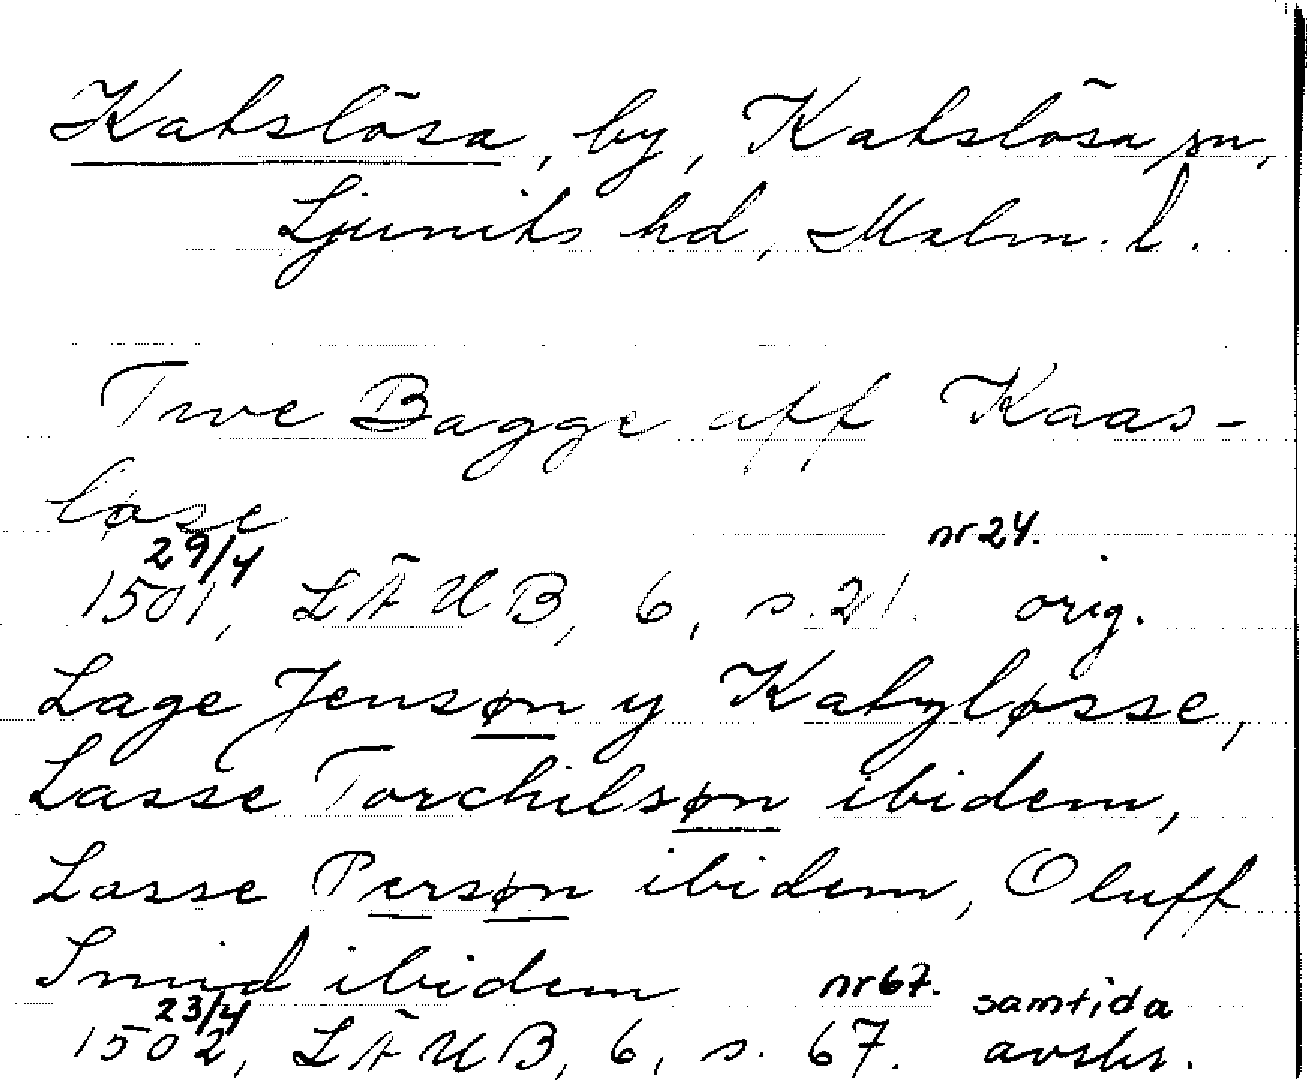 Katslösa, by, Katslösa sn,
Ljunits hd, Malm. l.
Twe Bagge aff Kaas-
løse
29/4 nr 24.
1501, LÄUB, 6, s. 21. orig.
Lage Jensøn y Katzløsse,
Lasse Torchilsøn ibidem,
Lasse Persøn ibidem, Oluff
Smid ibidem nr 67. samtida
23/4
1502, LÄUB, 6, s. 67. avskr.